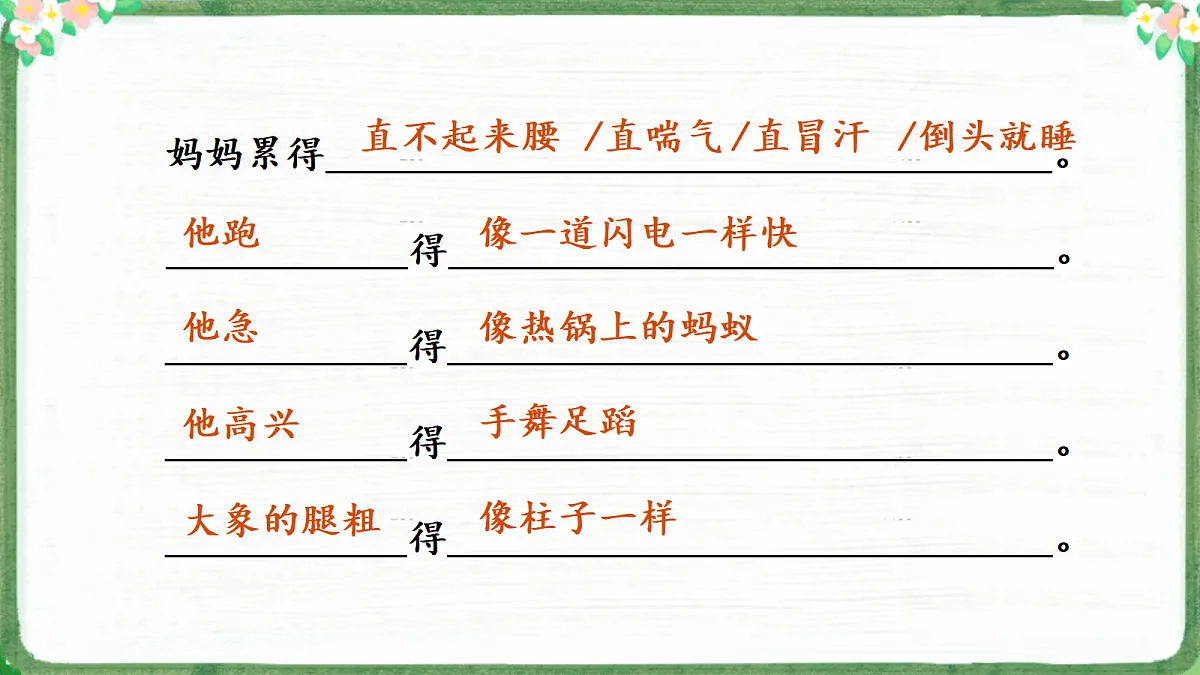 妈妈累得直不起来腰 /直喘气/直冒汗 /倒头就睡。
他跑得像一道闪电一样快。
他急得像热锅上的蚂蚁。
他高兴得手舞足蹈。
大象的腿粗得像柱子一样。